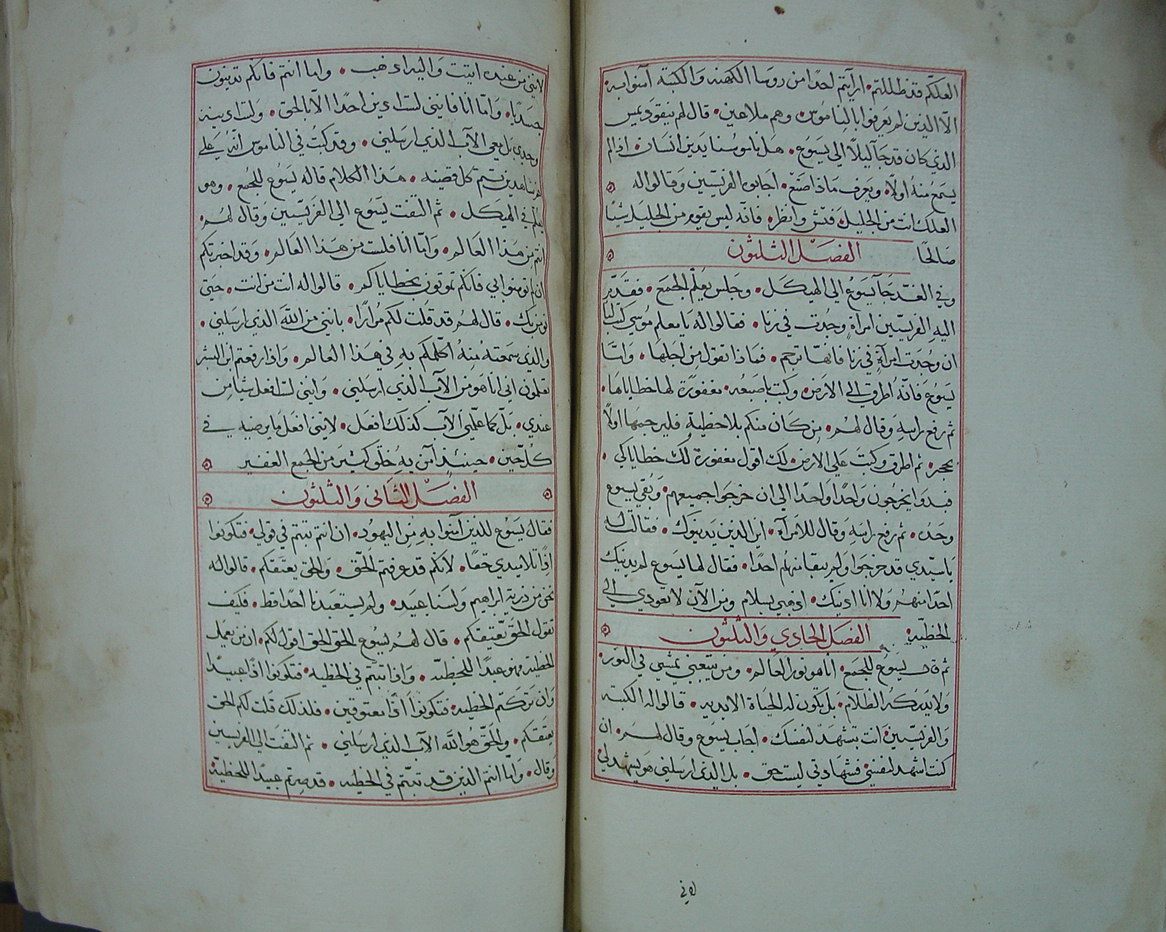 العلكم قد ظللتم ارايتم احدًا من روسا الكهنه والكتبة آمنوا به
الاّ الذين لم يعرفوا بالناموس وهم ملاعين قال لهم نيقوديمس
الذي كان قد جآ ليلاً الى يسوع هل ناموسنا يدين انسان اذا لم
يسمع منهُ اولاً ويعرف ماذا صنع اجابوا الفريسيين وقالوا له
العلك انت من الجليل فتش وانظر فانّه ليس يقوم من الجليل شيئا
صالحًا
الفصل الثلثون
وفي الغد جآ يسوع الى الهيكل وجلس يعلّم الجميع فقدّم
اليه الفريسيين امراة وجدت في زنا فقالوا له يا معلم موسى كتب لنا
ان وجدت امراة في زنا فانها ترجم فماذا تقول من اجلها وامّا
يسوع فانّه اطرق الى الارض وكتب باصبعه مغفورة لها خطاياها
ثم رفع راسه وقال لهم من كان منكم بلا خطية فليرجمها اولاً
بحجر ثم اطرق وكتب على الارض لك اقول مغفورة لك خطاياكي
فبدوا يخرجون واحدًا واحدًا الى ان خرجوا جميعهم وبقي يسوع
وحده ثم رفع راسه وقال للامراة اين الذين يدينوك فقالت له
يا سيدي قد خرجوا ولم يبقا منهم احدًا فقال لها يسوع لم يدينك
احدًا منهم ولا انا ادينك اذهبي بسلام ومن الآن لا تعودي الى
الخطية
الفصل الحادي والثلثون
ثم قال يسوع للجمع انا هو نور العالم ومن يتبعني يمشي في النور
ولا يدركه الظلام بل يكون له الحياة الابدية قالوا له الكتبه
والفريسيين انت تشهد لنفسك اجاب يسوع وقال لهم ان
كنت اشهد لنفسي فشهادتي ليست حق بل الذي ارسلني هو يشهد لي
لانني
لانني من عنده اتيت واليه اذهب وامّا انتم فانكم تدينون
جسديًا وامّا انا فانني لست ادين احدًا الاّ بالحق ولست ادينه
وحدي بل معي الآب الذي ارسلني وقد كتب في الناموس انّ على
شاهدين تتم كل قضية هذا الكلام قاله يسوع للجمع وهو
يعلم في الهيكل ثم التفت يسوع الى الفريسيين وقال لهم
انتم من هذا العالم وامّا انا فلست من هذا العالم وقد اخبرتكم
ان لم تومنوا بي فانكم تموتون بخطاياكم قالوا له انت من انت حتى
نومن بك قال لهم قد قلت لكم مرارًا بانني من الله الذي ارسلني
والذي سمعته منهُ اكلمكم به في هذا العالم واذا رفعتم ابن البشر
تعلمون اني انا هو من الآب الذي ارسلني وانني لست افعل شيا من
عندي بل كما علمني الآب كذلك افعل لانني افعل ما يرضيه في
كل حين حينئذٍ آمن به خلق كثير من الجمع الغفير
الفصل الثاني والثلثون
فقال يسوع للذين آمنوا به من اليهود ان انتم ثبتم في قولي فتكونوا
اذًا تلاميذي حقًا لانكم قد عرفتم الحق والحق يعتقكم قالوا له
نحن من ذرية ابراهيم ولسنا عبيد ولم يستعبدنا احدًا قط فكيف
تقول الحق يعتقكم قال لهم يسوع الحق الحق اقول لكم ان من يعمل
الخطية فهو عبدًا للخطية واذا ثبتم في الخطية فتكونوا اذًا عبيدًا
وان تركتم الخطية فتكونوا اذًا معتوقين فلذلك قلت لكم الحق
يعتقكم والحق هو الله الآب الذي ارسلني ثم التفت الى الفريسيين
وقال وامّا انتم الذين قد ثبتم في الخطية قد صرتم عبيدًا للخطية